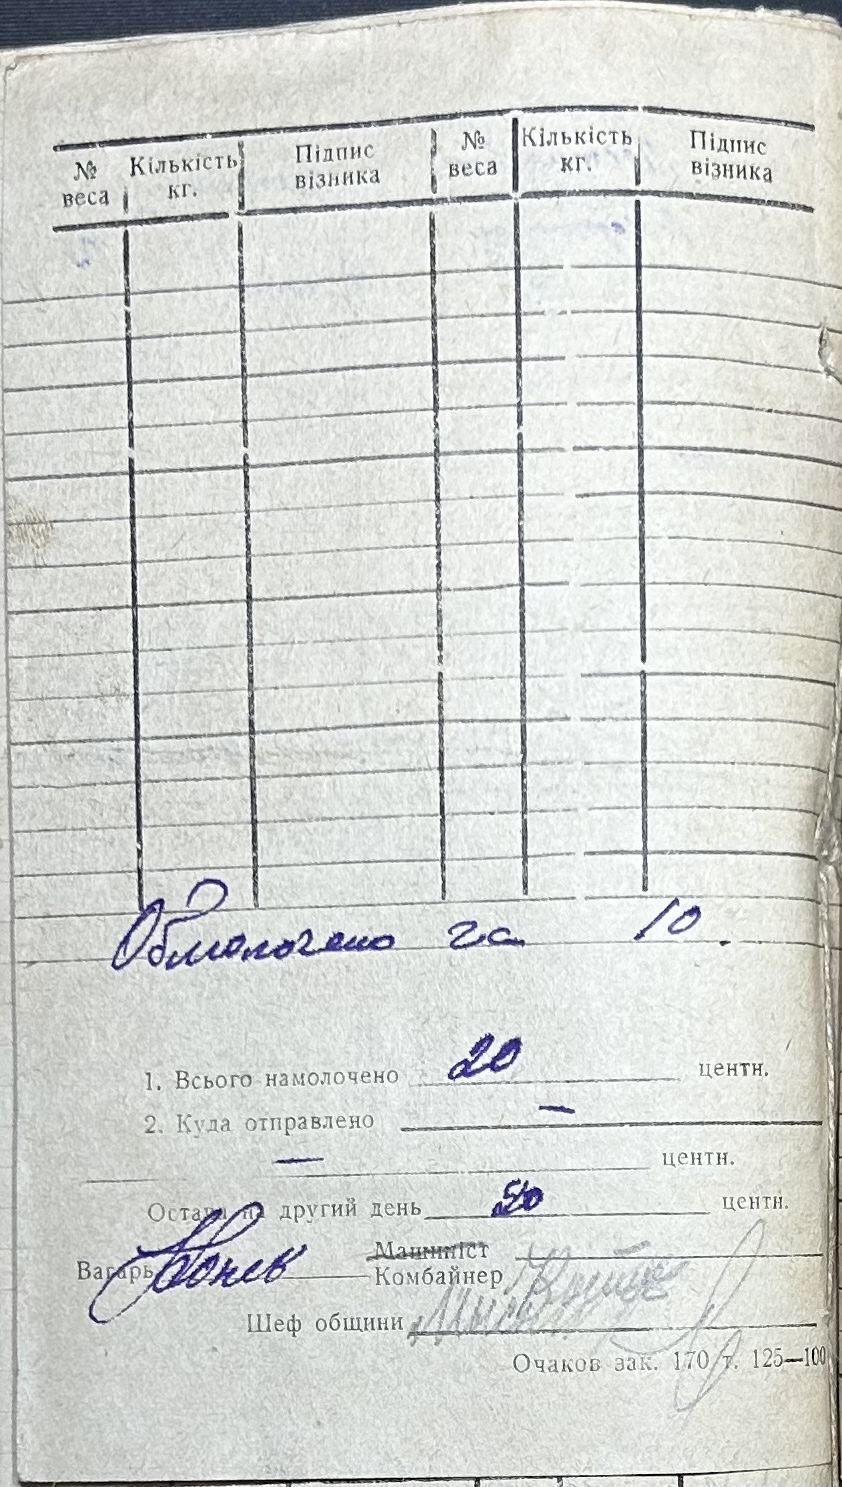 № веса Кількість кг. Підпис візника № веса Кількість кг. Підпис візника
Обмолочено га 10.
1. Всього намолочено 20 центн.
2. Куда отправлено —
— центн.
Остача на другий день центн.
Вагарь Машиніст
Комбайнер
Шеф общини
Очаков зак. 170 т. 125—100